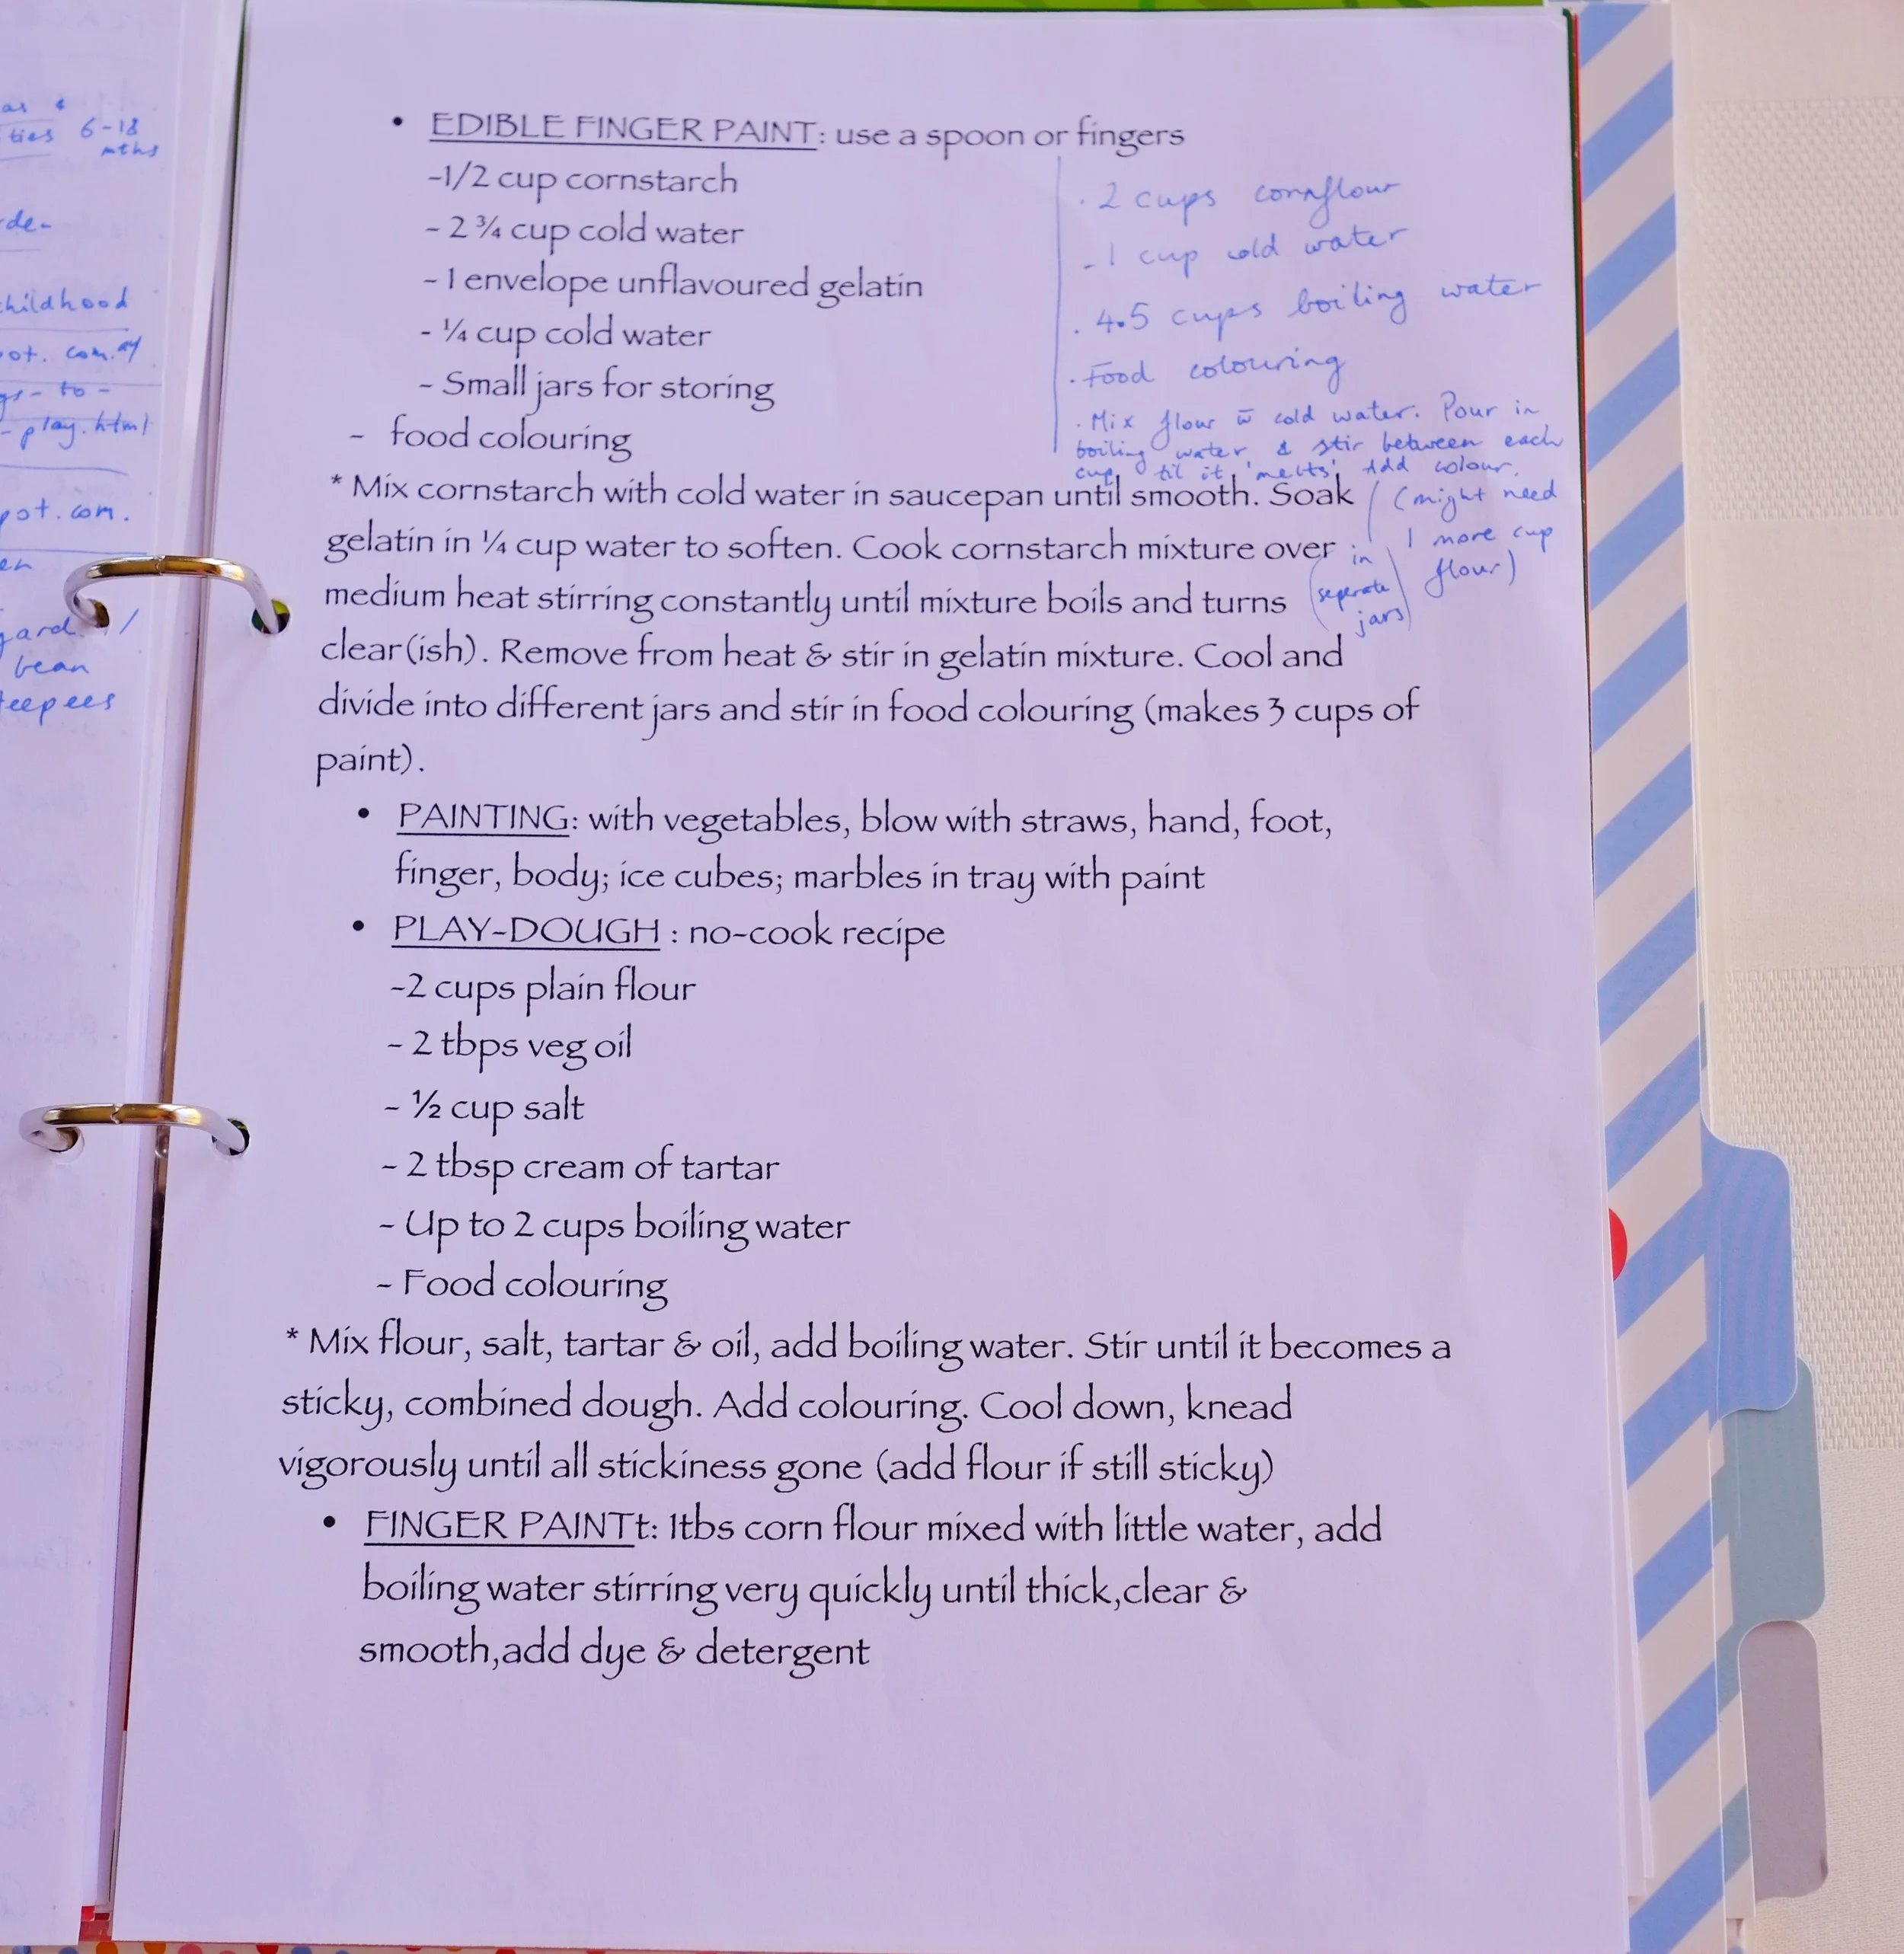 as &
ties 6-18
mths
rde-
childhood
ot. com.
gs-to-
-play.html
pot.com.
en
gard /
bean
teepees
• EDIBLE FINGER PAINT: use a spoon or fingers
-1/2 cup cornstarch
- 2 ¾ cup cold water
- 1 envelope unflavoured gelatin
- ¼ cup cold water
- Small jars for storing
- food colouring
. 2 cups cornflour
- 1 cup cold water
. 4.5 cups boiling water
. Food colouring
. Mix flour w̄ cold water. Pour in
boiling water & stir between each
cup, til it 'melts'. Add colour.
(might need
1 more cup
flour)
in
(seperate
jars)
* Mix cornstarch with cold water in saucepan until smooth. Soak
gelatin in ¼ cup water to soften. Cook cornstarch mixture over
medium heat stirring constantly until mixture boils and turns
clear(ish). Remove from heat & stir in gelatin mixture. Cool and
divide into different jars and stir in food colouring (makes 3 cups of
paint).
• PAINTING: with vegetables, blow with straws, hand, foot,
finger, body; ice cubes; marbles in tray with paint
• PLAY-DOUGH : no-cook recipe
-2 cups plain flour
- 2 tbps veg oil
- ½ cup salt
- 2 tbsp cream of tartar
- Up to 2 cups boiling water
- Food colouring
* Mix flour, salt, tartar & oil, add boiling water. Stir until it becomes a
sticky, combined dough. Add colouring. Cool down, knead
vigorously until all stickiness gone (add flour if still sticky)
• FINGER PAINTt: 1tbs corn flour mixed with little water, add
boiling water stirring very quickly until thick,clear &
smooth,add dye & detergent